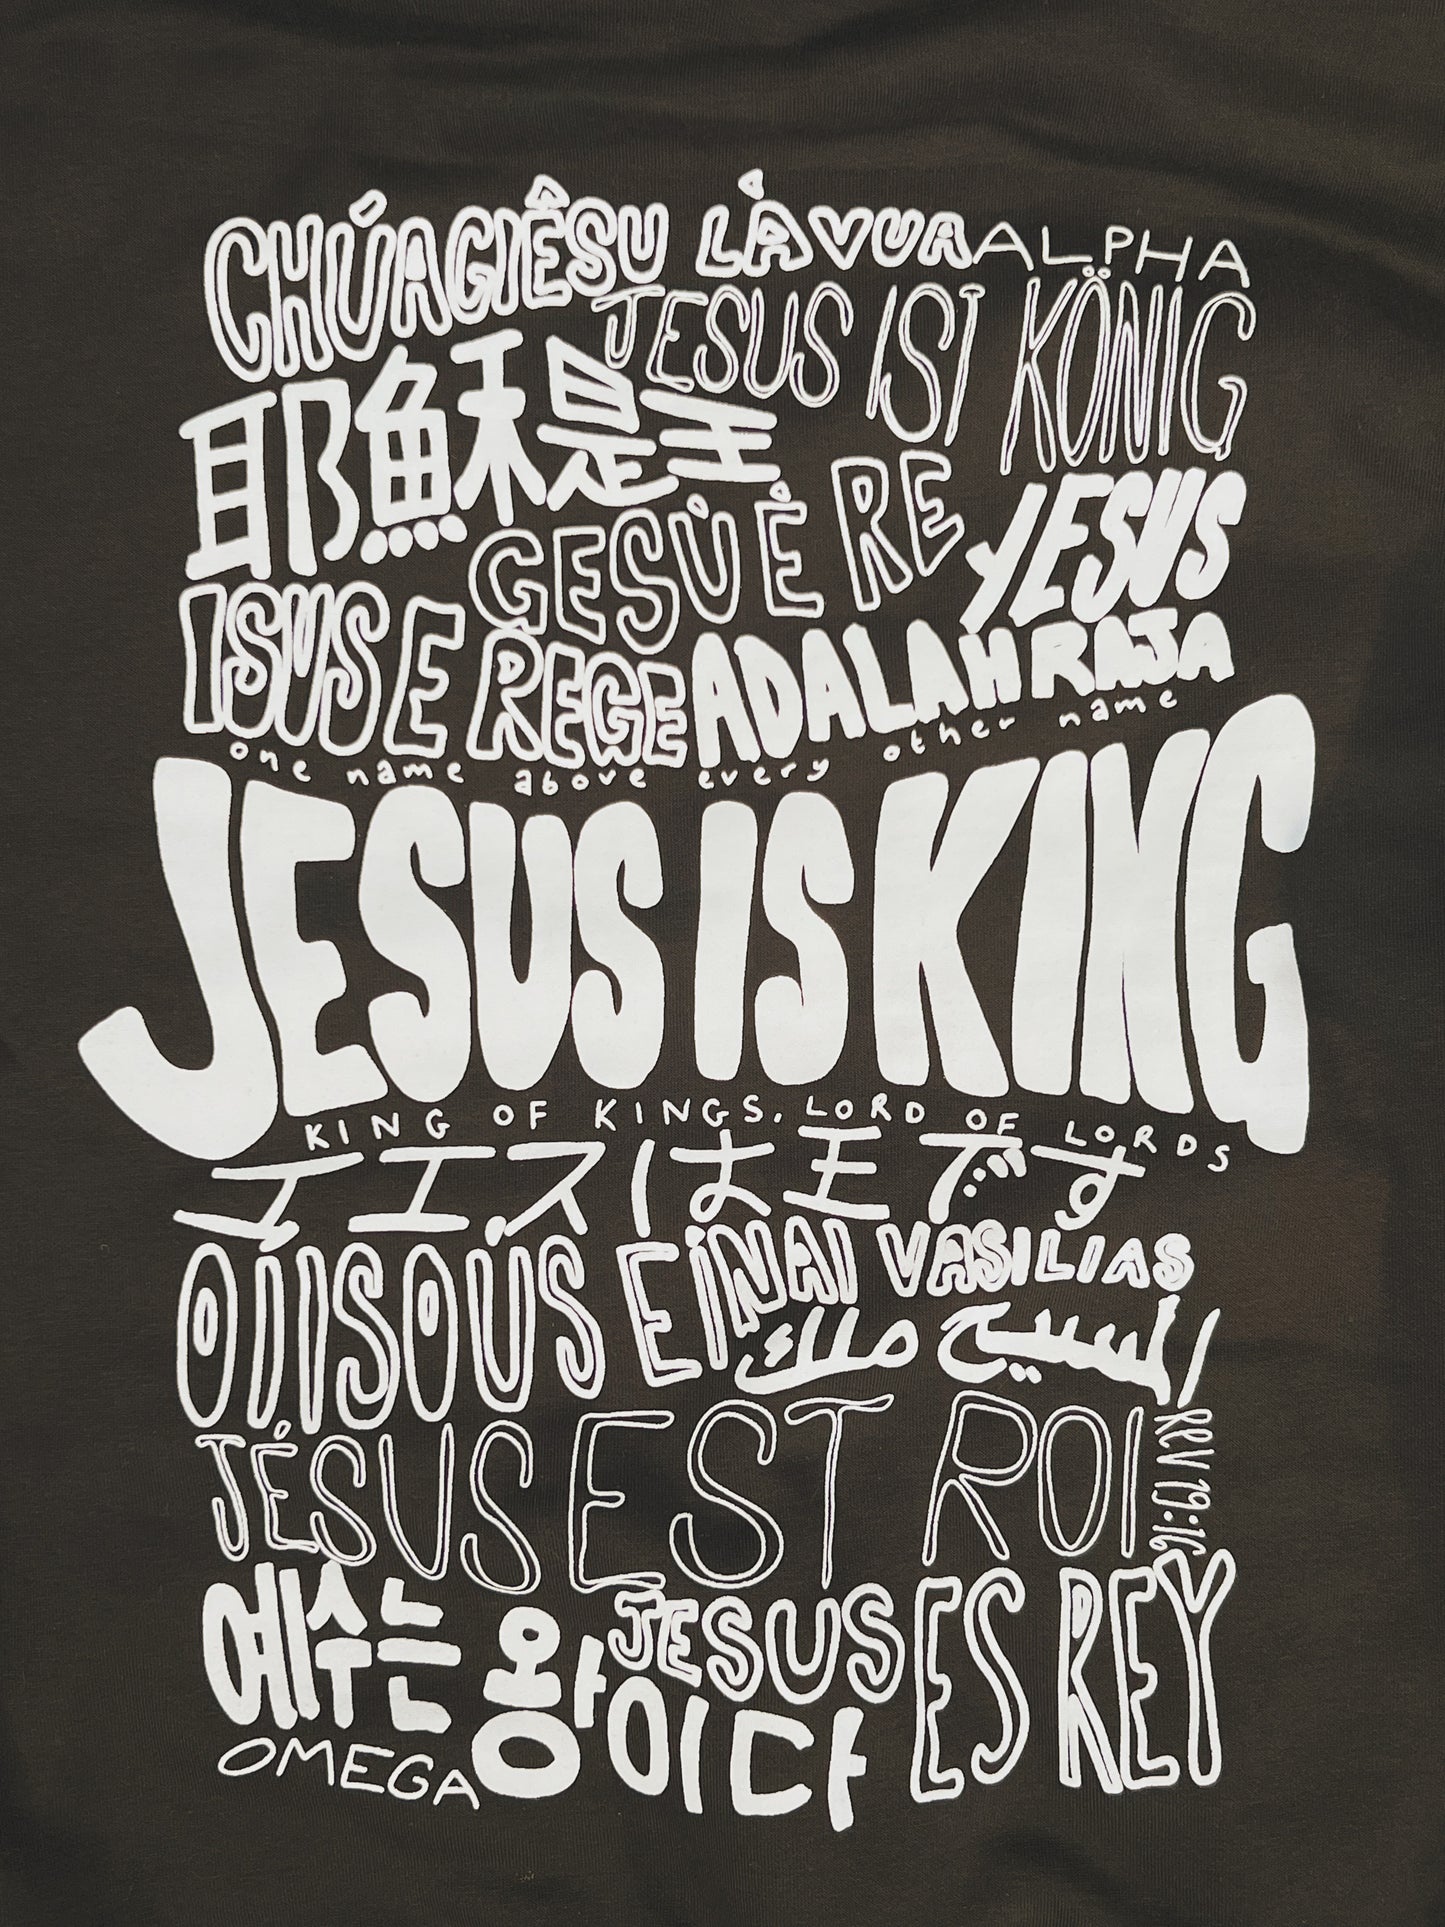 CHÚAGIÊSU LÀ VUA
ALPHA
JESUS IST KÖNIG
耶穌是王
GESÙ È RE
YESUS
ISUS E REGE
ADALAH RAJA
one name above every other name
JESUS IS KING
KING OF KINGS, LORD OF LORDS
イエスは王です
OIISOÚS EÍNAI VASILIÁS
المسيح ملك
JÉSUS EST ROI
REV 19:16
예수는 왕이다
JESUS ES REY
OMEGA